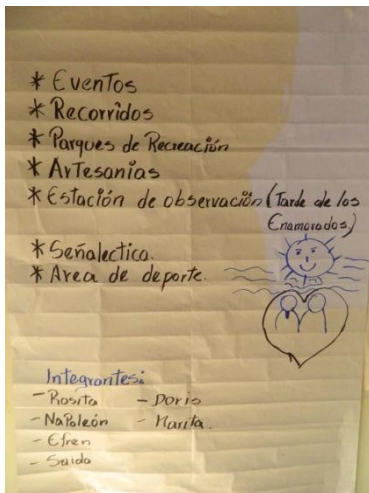 * Eventos
* Recorridos
* Parques de Recreación
* Artesanias
* Estación de observación (Tarde de los
Enamorados)
* Señalectica.
* Area de deporte.
Integrantes:
- Rosita - Doris
- Napoleón - Marita.
- Efren
- Saida